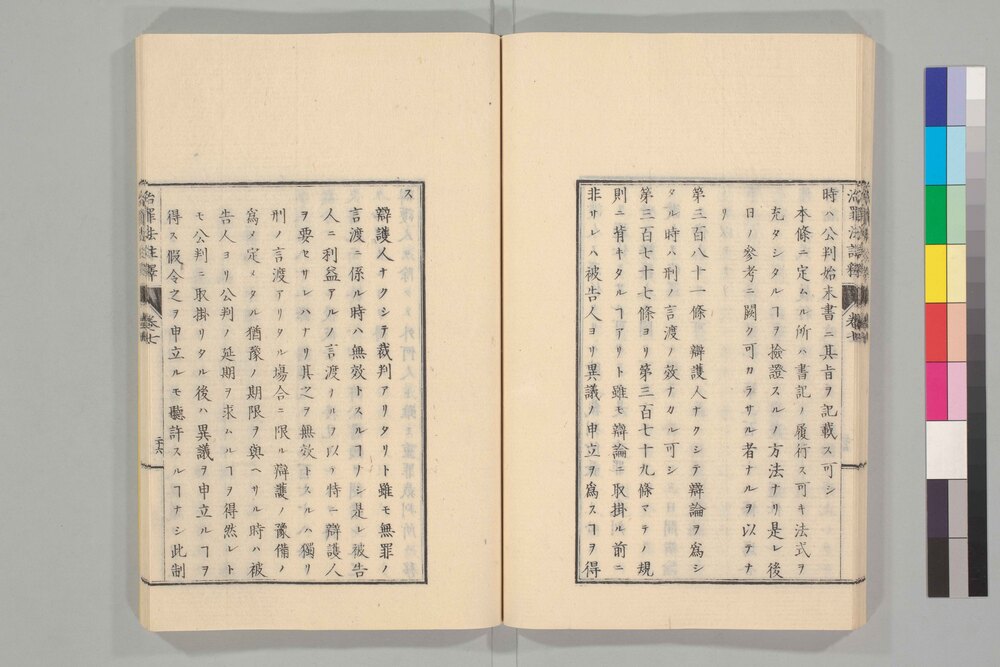 時ハ公判始末書ニ其旨ヲ記載ス可シ
本條ニ定ムル所ハ書記ノ履行ス可キ法式ヲ
充タシタルヿヲ撿證スルノ方法ナリ是レ後
日ノ參考ニ闕ク可カラサル者ナルヲ以テナ
リ
第三百八十一條辯護人ナクシテ辯論ヲ爲シ
タル時ハ刑ノ言渡ノ效ナカル可シ
第三百七十七條ヨリ第三百七十九條マテノ規
則ニ背キタルヿアリト雖モ辯論ニ取掛ル前ニ
非サレハ被告人ヨリ異議ノ申立ヲ爲スヿヲ得
ス
辯護人ナクシテ裁判アリタリト雖モ無罪ノ
言渡ニ係ル時ハ無效トスルヿナシ是レ被告
人ニ利益アルノ言渡ナルヲ以テ特ニ辯護人
ヲ要セサレハナリ其之ヲ無效トスルハ獨リ
刑ノ言渡アリタル塲合ニ限ル辯護ノ豫備ノ
爲メ定メタル猶豫ノ期限ヲ與ヘサル時ハ被
告人ヨリ公判ノ延期ヲ求ムルヿヲ得然レト
モ公判ニ取掛リタル後ハ異議ヲ申立ルヿヲ
得ス假令之ヲ申立ルモ聽許スルヿナシ此制
治罪法註釋 卷七
二十六